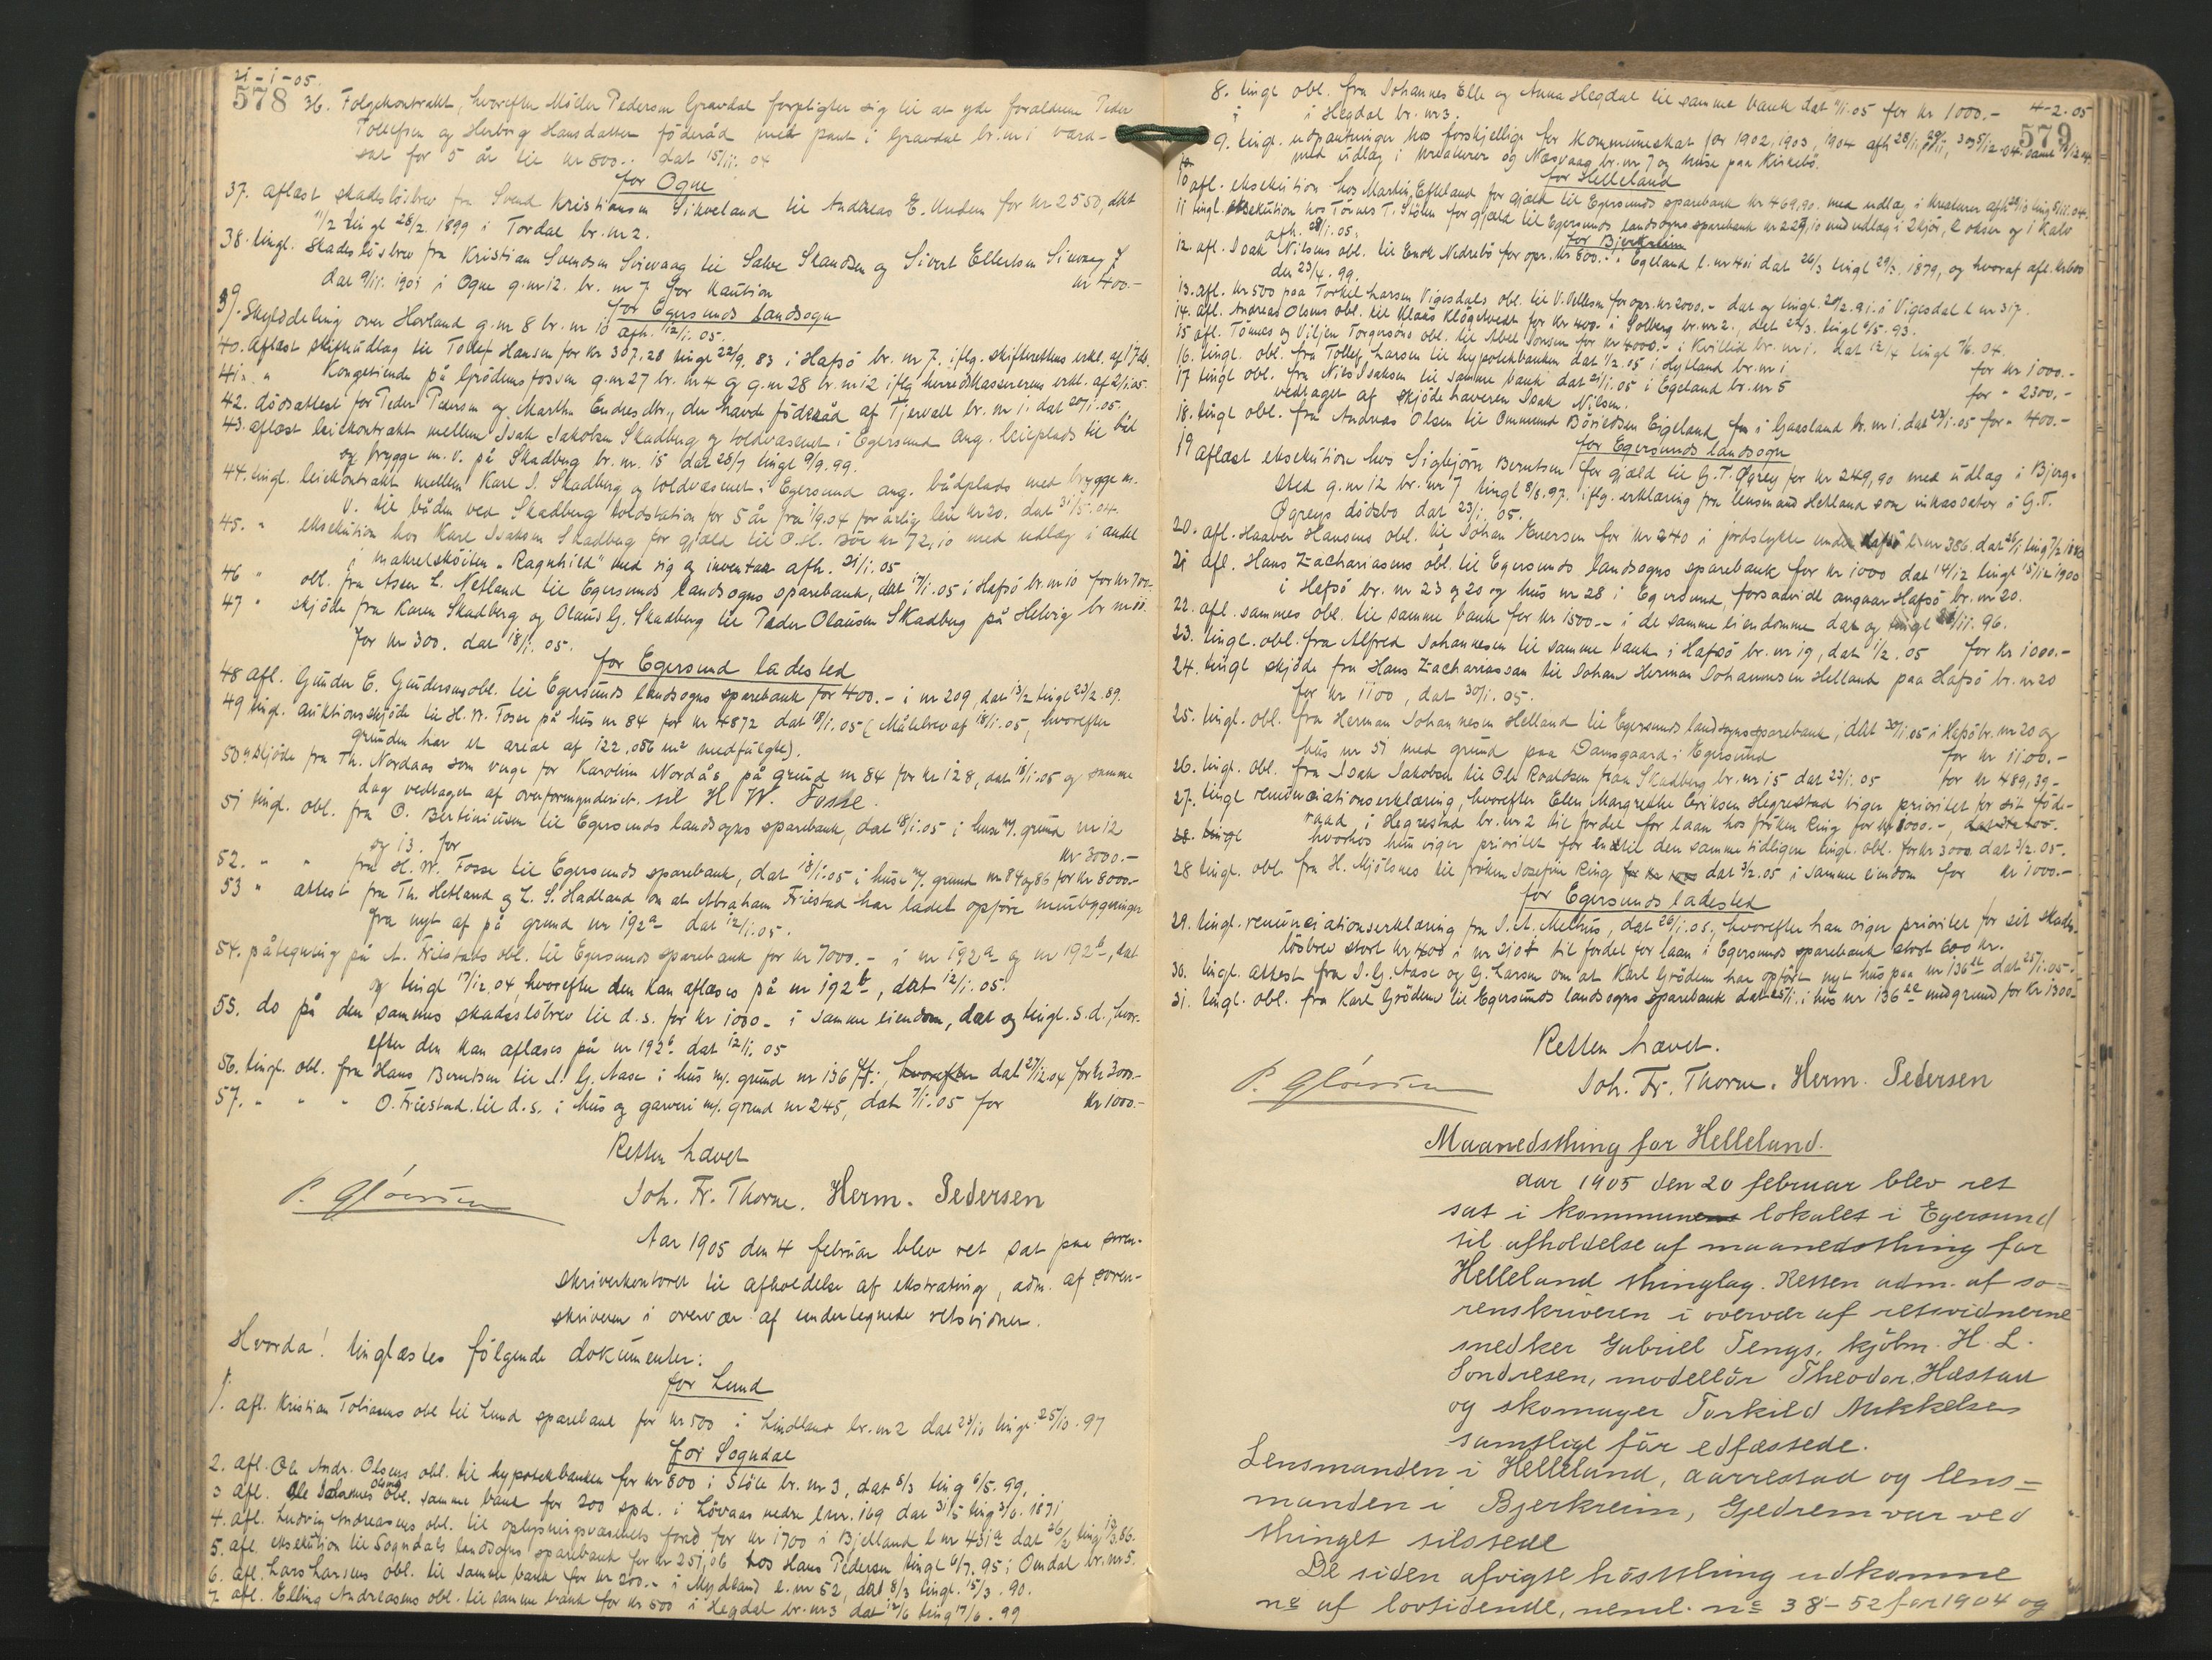 21-1-05.
578
36. Folgekontrakt, hvorefter Möller Pedersen Gravdal forpligter sig til at yde foraldrene Peder
Tollefsen og Herborg Hansdatter föderåd med pant i Gravdal br. nr 1 værd-
sat for 5 år til kr 800.- dat 15/11. 04
for Ogne
37. aflæst skadeslösbrev fra Svend Kristiansen Sikveland til Andreas E. Undem for kr 2550, dat
11/2 tingl 28/2. 1899 i Tordal br. nr 2.
38. tingl. skadeslösbrev fra Kristian Svendsen Sirevaag til Salve Skandsen og Sivert Ellertsen Sirevaag
dat 9/11. 1901 i Ogne g. nr 12. br. nr 7 for kaution kr 400.-
for Egersunds landsogn
39. Skylddeling over Hovland g. nr 8 br. nr 10 afh. 12/1. 05.
40. aflæst skifteudlag til Tollef Hansen for kr 307,28 tingl 22/9. 83 i Hafsö br. nr 7. iflg. skifterettens erkl. af 17 ds.
41. " Kongetiende på Grödemsfossen g. nr 27 br. nr 4 og g. nr 28 br. nr 12 iflg herredskassererens erkl. af 2/1.05.
42. dödsattest for Peder Pedersen og Martha Endresdtr., der havde föderåd af Tjervall br. nr 1. dat 20/1.05.
43. aflæst leiekontrakt mellem Isak Jakobsen Skadberg og toldvæsenet i Egersund ang. leieplads til båt
og brygge m. v. på Skadberg br. nr. 15 dat 28/7 tingl 9/9. 99.
44. tingl. leiekontrakt mellem Karl I. Skadberg og toldvæsenet i Egersund ang. bådplads med brygge m.
v. til båden ved Skadberg toldstation for 5 år fra 1/9.04 for årlig leie kr 20. dat 31/5.04.
45. " eksekution hos Karl Isaksen Skadberg for gjæld til O. H. kr 72,10 med udlag i andel
i makrelsköiten "Ragnhild" med rig og inventar afh. 21/1. 05
46 " obl. fra Asser L. Netland til Egersunds landsogns sparebank, dat 17/1. 05 i Hafsö br. nr 10 for kr 700.-
47 " skjöde fra Karen Skadberg og Olaus G. Skadberg til Peder Olausen Skadberg på Helvig br nr 11.
for kr 300. dat 18/1. 05.
for Egersund ladested
48 afl. Gunder E. Gundersens obl. til Egersunds landsogns sparebank for 400.- i nr 209, dat 13/2 tingl 23/2. 89.
49 tingl. auktionsskjöde til H. W. Fosse på hus nr 84 for kr 4872 dat 18/1.05 (Målebrev af 18/1.05, hvorefter
grunden har et areal af 122,056 m² medfulgte).
50 " skjöde fra Th. Nordaas som verge for Karoline Nordås, på grund nr 84 for kr 128, dat 18/1.05 og samme
dag vedtaget af overformynderiet. til H W. Fosse.
51 tingl. obl. fra O. Bertiniusen til Egersunds landsogns sparebank, dat 18/1.05 i huse m/. grund nr 12
og 13. for kr 3000.-
52. " " fra H. W. Fosse til Egersunds sparebank, dat 18/1.05 i huse m/. grund nr 84 og 86 for kr 8000.-
53 " attest fra Th. Hetland og L. S. Hadland om at Abraham Friestad har ladet opföre murbygninger
fra nyt af på grund nr 192a dat 12/1.05.
54. påtegning på A. Friestads obl. til Egersunds sparebank for kr 7000.- i nr 192a og nr 192b, dat
og tingl 17/12.04, hvorefter den kan aflæses på nr 192b, dat 12/1.05.
55. do på den sammes skadeslösbrev til d. s. for kr 1000- i samme eiendom, dat og tingl. s. d., hvor-
efter den kan aflæses på nr 192b dat 12/1. 05
56. tingl. obl. fra Hans Berntsen til I. G. Aase i hus m/. grund nr 136 ff: hvorefter dat 27/12.04 for kr 300.-
57. " " " O. Friestad. til d. s. i hus og garveri m/. grund nr 245, dat 7/1.05 for kr 1000.-
Retten hævet
Joh. Fr. Thorne. Herm. Pedersen
Aar 1905 den 4 februar blev ret sat paa soren-
skriverkontoret til afholdelse af ekstrating, adm. af soren-
skriveren i overvær af undertegnede retsvidner.
Hvorda! tinglæstes fölgende dokumenter:
for Lund
1. afl. Kristian Tobiasens obl til Lund sparebank for kr 500 i Lindland br. nr 2 dat 23/10 tingl 25/10. 97
for Sogndal
2. afl. Ole Andr. Olsens obl. til hypotekbanken for kr 800 i Stöle br. nr 3, dat 8/3 ting 6/5. 99.
3 afl. Ole Johannes Olsens obl. samme bank for 200 spd. i Lövaas nedre l. nr. 169 dat 31/5 ting 3/6. 1871
4. afl. Ludvig Andreasens obl. til oplysningsvæsenets fond for kr 1700 i Bjelland l nr 431a dat 26/2 ting 13/3.86.
5. afl. eksekution til Sogndals landsogns sparebank for kr 257,06 hos Hans Pedersen tingl 6/7. 95 i Omdal br. nr 5.
6. afl. Lars Larsens obl. til samme bank for kr 200.- i Mydland l. nr 52, dat 8/3 tingl. 15/3. 90.
7. afl. Elling Andreasens obl. til samme bank for kr 500 i Hegdal br. nr 3 dat 12/6 ting 17/6. 99
4-2-05
579
8. tingl obl. fra Johannes Elle og Anna Hegdal til samme bank dat 11/1.05 for kr 1000.-
i i Hegdal br. nr 3.
9. tingl. udpantninger hos forskjellige for kommuneskat for 1902, 1903, 1904 afh 28/11, 29/11, 3 og 5/12 04. samt 12.04.
med udlæg i kreaturer og Næsvaag br. nr 7 og huse paa Kirkebö.
for Helleland
10 afl. eksekution hos Martin Efteland for gjæld til Egersunds sparebank kr 469,90. med udlag i kreaturer afh 29/10 ting 8/11.04.
11 tingl. eksekution hos Tönnes T. Stölen for gjæld til Egersunds landsogns sparebank kr 229,10 med udlæg i 2 kjör, 2 okser og 1 kalv
afh. 28/1.05.
for Bjerkreim
12. afl. Isak Nilsens obl. til Enok Nedrebö for opr. kr 800.- i Egeland l. nr 401 dat 26/3 tingl 29/3. 1879, og hvoraf afl. kr 600
den 23/4. 99.
13. afl. kr 500 paa Torkel Larsen Vigesdals obl. til V. Ollesen for opr. kr 2000.- dat og tingl. 20/2.91. i Vigesdal l nr 317.
14. afl. Andreas Olsens obl. til Klaus Klögetvedt for kr 400.- i Solberg br. nr 2., dat 29/3. tingl 4/5. 93.
15 afl. Tönnes og Viljen Torgersens obl. til Abel Jonsen for kr 4000.- i Kvillid br. nr 1. dat 12/4 tingl 7/6. 04.
16. tingl. obl. fra Tollef Larsen til hypotekbanken dat 1/2.05 i Hytland br. nr 1 for kr 1000.-
17 tingl obl. fra Nils Isaksen til samme bank dat 21/1.05 i Egeland br. nr 5
vedtaget af skjödehaveren Isak Nilsen. for " 2300.-
18. tingl. obl. fra Andreas Olsen til Ommund Börresen Eigeland for i Gaasland br. nr 1. dat 23/1.05 for " 400.-
for Egersunds landsogn
19 aflæst eksekution hos Sigbjörn Berntsen for gjæld til G. T. Øgrey for kr 249,90 med udlag i Bjerg-
sted g. nr 12 br. nr 7 tingl 8/8.97. iflg. erklæring fra lensmand Hetland som inkassator i G. T.
Øgreys dödsbo dat 23/1. 05.
20. afl. Haaver Hansens obl. til Johan Iversen for kr 240 i jordstykke under Hafsö l. nr 386. dat 26/1 ting 7/2 1880
21 afl. Hans Zachariasens obl. til Egersunds landsogns sparebank for kr 1000 dat 14/12 tingl 15/12 1900
i Hafsö br. nr 23 og 20 og hus nr 28 i Egersund, forsaavidt angaar Hafsö br. nr 20.
22. afl. sammes obl. til samme bank for kr 1500.- i de samme eiendomme dat og tingl 28/11. 96.
23. tingl. obl. fra Alfred Johannesen til samme bank i Hafsö br. nr 19, dat 1/2. 05 for kr 1000.-
24. tingl skjöde fra Hans Zachariassen til Johan Herman Johannesen Helland paa Hafsö br. nr 20
for kr 1100, dat 30/1. 05.
25. tingl. obl. fra Herman Johannesen Helland til Egersunds landsogns sparebank, dat 30/1.05 i Hafsö br. nr 20 og
hus nr 51 med grund paa Damsgaard i Egersund for kr 1100.-
26. tingl. obl. fra Isak Jakobsen til Ole Roaldsen paa Skadberg br. nr 15 dat 23/1. 05 for kr 489,39-
27. tingl renunciationserklæring, hvorefter Ellen Margrethe Eriksen Hegrestad viger prioritet for sit föde-
raad i Hegrestad br. nr 2 til fordel for laan hos fröken Ring for kr 1000.-,
28. tingl hvorhos hun viger prioritet for en til den samme tidligere tingl. obl. for kr 3000. dat 3/2. 05.
28 tingl. obl. fra H. Mjölsnes til fröken Josefine Ring for kr 1000 dat 3/2.05 i samme eiendom for kr 1000.-
for Egersunds ladested
29. tingl. renunciationserklæring fra J. A. Melhus, dat 26/1.05, hvorefter han viger prioritet for sit skades-
lösbrev stort kr 400 i nr 210 til fordel for laan i Egersunds sparebank stort 600 kr.
30. tingl. attest fra I. G. Aase og G. Larsen om at Karl Grödem har opfört nyt hus paa nr 136 dat 25/1.05.-
31. tingl. obl. fra Karl Grödem til Egersunds landsogns sparebank dat 25/1. i hus nr 136 med grund for kr 1300-
Retten hævet.
Joh. Fr. Thorne. Herm. Pedersen
Maanedsthing for Helleland.
aar 1905 den 20 februar blev ret
sat i kommunens lokalet i Egersund
til afholdelse af maanedsthing for
Helleland thinglag. Retten adm. af so=
renskriveren i overvær af retsvidnerne
snedker Gabriel Tengs, kjöbm. H. L.
Sondresen, modellör Theodor Hæstad
og skomager Torkild Mikkelsen
samtlige för edfæstede.
Lensmanden i Helleland, Aarrestad og lens=
manden i Bjerkreim, Gjedrem var ved
thinget tilstede
De siden afvigte höstthing udkomne
no af lovtidende, neml. no 38-52 for 1904 og